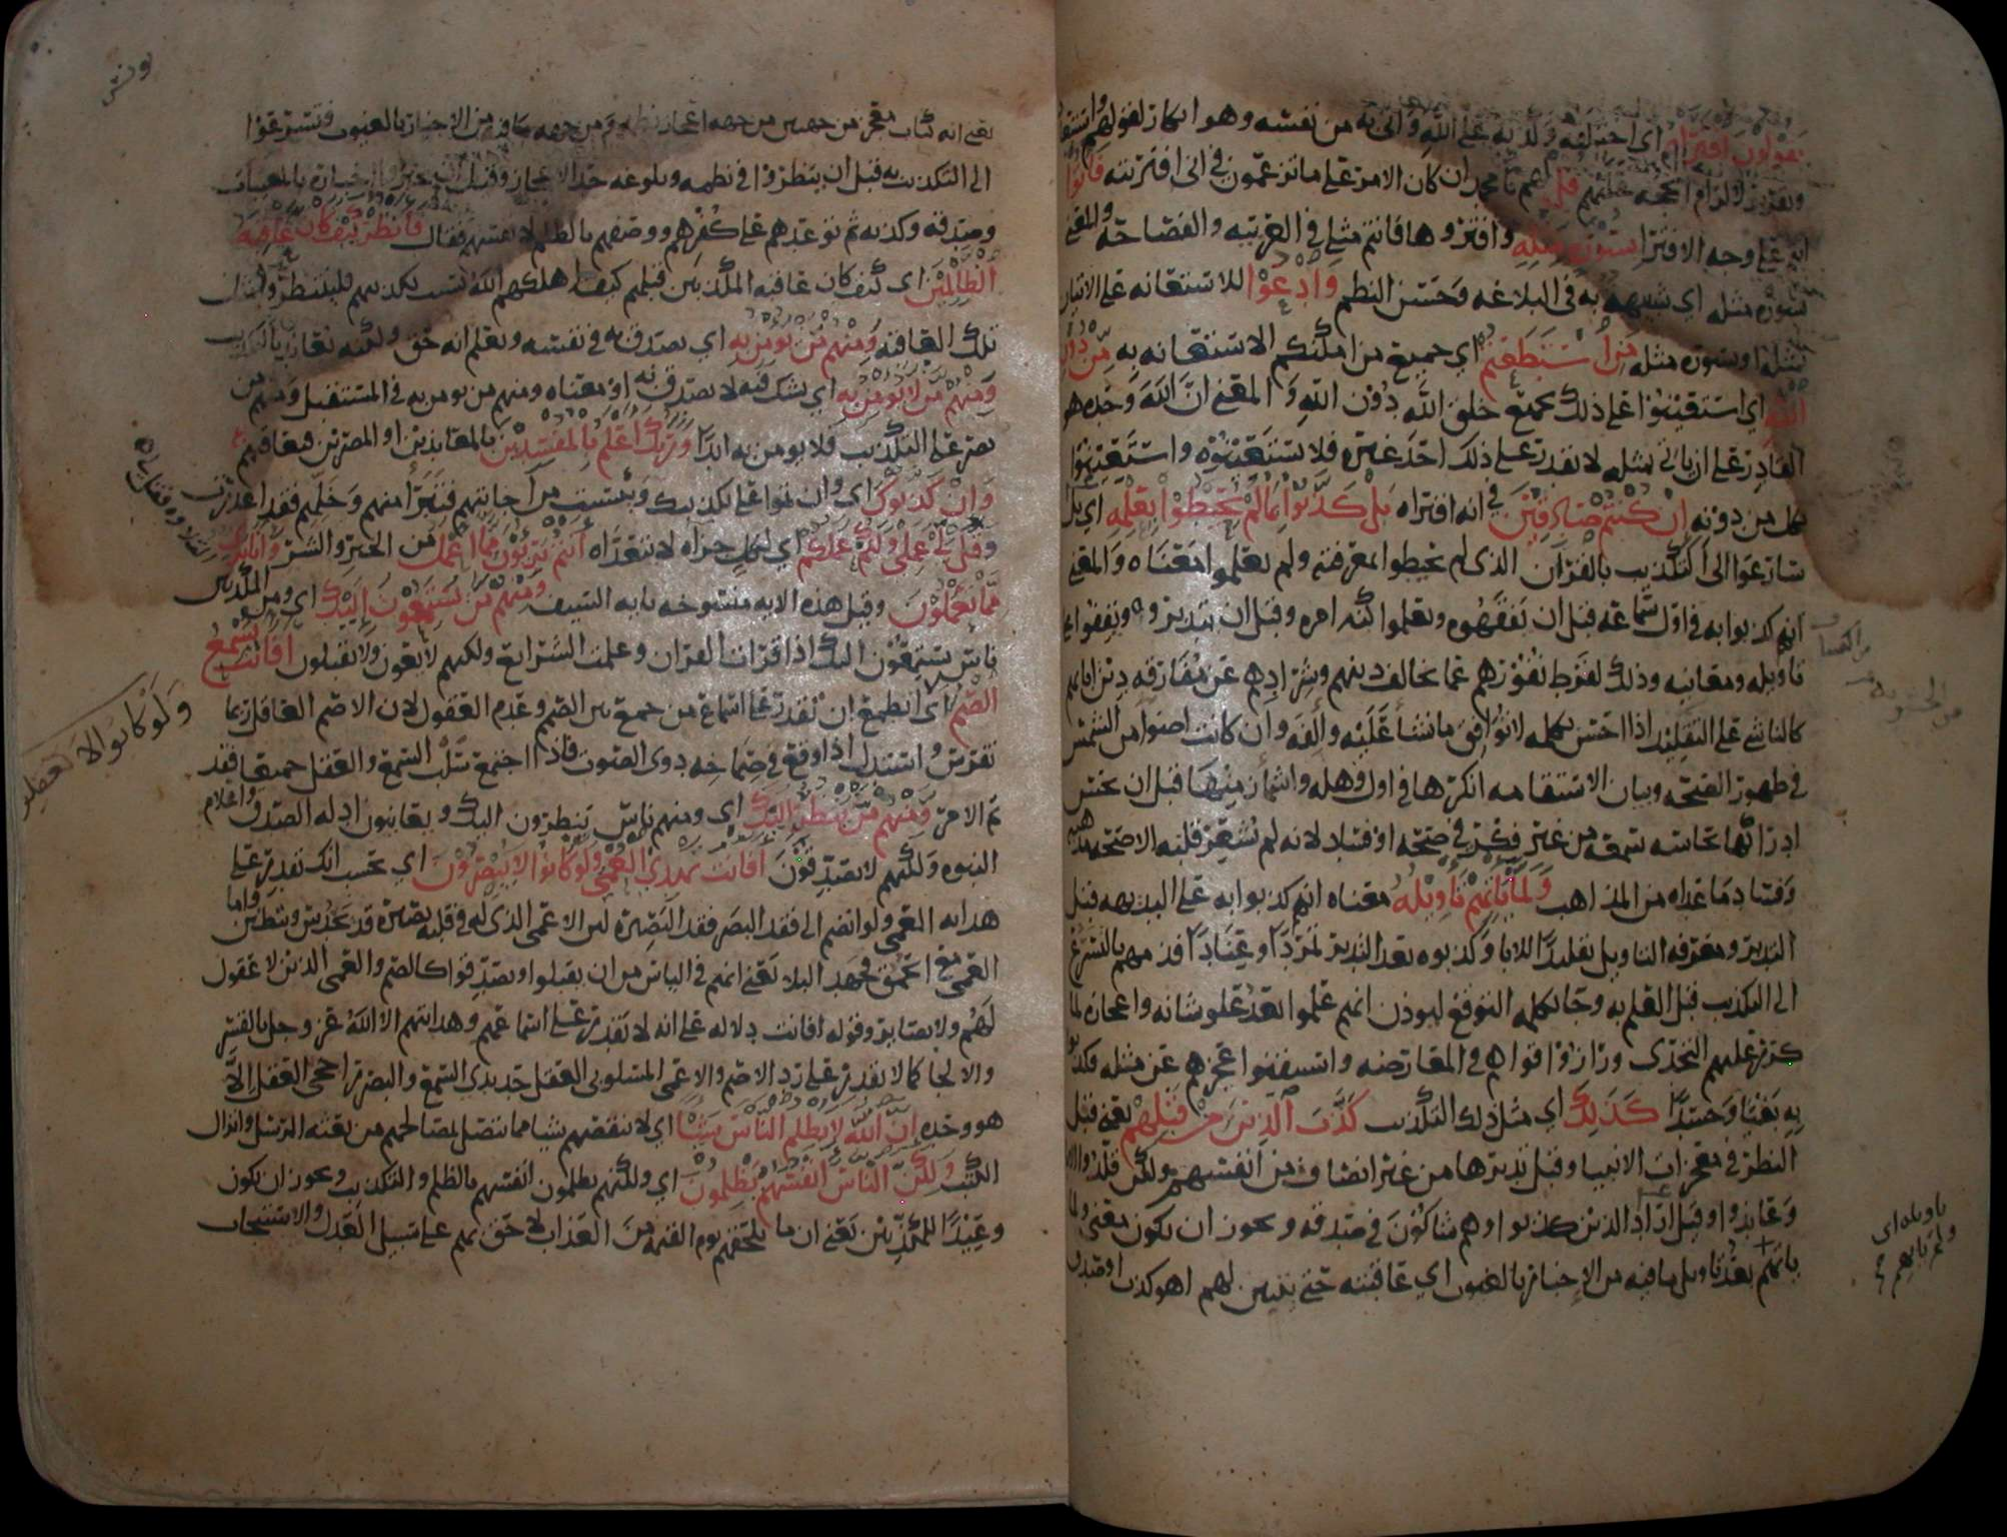 يقولون افتراه اي اختلقه ولد به على الله واتى به من نفسه وهو انكار لقولهم واستبعاد
وتقرير لالزام الحجة عليهم قل لهم يا محمد ان كان الامر على ما تزعمون في اني افتريته فاتوا
انتم على وجه الافترا بسورة مثله وافتروها فانتم مثلي في العربية والفصاحة والمعنى
بسورة مثله اي شبيهة به في البلاغة وحسن النظم وادعوا للاستعانة على الاتيان
بسورة مثله من استطعتم اي جميع من امكنكم الاستعانة به من دون
الله اي استعينوا على ذلك بجميع خلق الله دون الله والمعنى ان الله وحده هو
القادر على ان ياتي بمثله لا يقدر على ذلك احد غيره فلا تستعينوه واستعينوا
بكل من دونه ان كنتم صادقين في انه افتراه بل كذبوا بما لم يحيطوا بعلمه اي بل
سارعوا الى التكذيب بالقرآن الذي لم يحيطوا بمعرفته ولم يعلموا معناه والمعنى
انهم كذبوا به في اول سماعه قبل ان يفقهوه ويعلموا كنه امره وقبل ان يتدبروه ويقفوا على
تاويله ومعانيه وذلك لفرط نفورهم عما يخالف دينهم وشرادهم عن مفارقة دين ابائهم
كالناشي على التقليد اذا احس بكلمة لا توافق ما نشا عليه والفه وان كانت اضوا من الشمس
في ظهور الصحة وبيان الاستقامة انكرها في اول وهلة واشماز منها قبل ان يحس
ادراكها بحاسة سمعه من غير فكر في صحة او فساد لانه لم يشعر قلبه الا صحة مذهبه
وفساد ما عداه من المذاهب ولما ياتهم تاويله معناه انهم كذبوا به على البديهة قبل
التدبر ومعرفة التاويل تقليدا للابا وكذبوه بعد التدبر تمردا وعنادا فذمهم بالتسرع
الى التكذيب قبل العلم به وجا بكلمة التوقع ليوذن انهم علموا بعد علو شانه واعجازه لما
كرر عليهم التحدي ورازوا قواهم في المعارضة واستيقنوا عجزهم عن مثله فكذبوا
به بغيا وحسدا كذلك اي مثل ذلك التكذيب كذب الذين من قبلهم يعني قبل
النظر في معجزات الانبيا وقبل تدبرها من غير انصاف من انفسهم ولكن قلدوا الابا
وعاندوا وقيل اراد الذين كذبوا وهم شاكون في صدقه ويجوز ان يكون معنى ولما
ياتهم بعد تاويل ما فيه من الاخبار بالغيوب اي عاقبته حتى يتبين لهم اهو كذب ام صدق
تاويله اي
ولم ياتهم
يونس
يعني انه كتاب معجز من جهتين من جهة اعجاز نظمه ومن جهة ما فيه من الاخبار بالغيوب فتسرعوا
الى التكذيب به قبل ان ينظروا في نظمه وبلوغه حد الاعجاز وقبل ان يخبروا اخباره بالمغيبات
وصدقه وكذبه ثم توعدهم على كفرهم ووصفهم بالظلم لانفسهم فقال فانظر كيف كان عاقبة
الظالمين اي كيف كان عاقبة المكذبين قبلهم كيف اهلكهم الله بسبب تكذيبهم فلينتظروا
تلك العاقبة ومنهم من يومن به اي يصدق به في نفسه ويعلم انه حق ولكنه يعاند بالتكذيب
ومنهم من لا يومن به اي يشك فيه لا يصدق به او معناه ومنهم من يومن به في المستقبل ومنهم من
يصر على التكذيب فلا يومن به ابدا وربك اعلم بالمفسدين بالمعاندين او المصرين فيعاقبهم
وان كذبوك اي وان تموا على تكذيبك ويئست من اجابتهم فتبرا منهم وخلهم فقد اعذرت
وقل لي عملي ولكم عملكم اي لكل جزاه لا يتعداه انتم بريئون مما اعمل من الخير والشر وانا بريء
مما تعملون وقيل هذه الاية منسوخة باية السيف ومنهم من يستمعون اليك اي ومن المكذبين
ناس يستمعون اليك اذا قرات القران وعلمت الشرايع ولكنهم لا يعون ولا يقبلون افانت تسمع
الصم اي اتطمع ان تقدر على اسماع من جمع بين الصم وعدم العقول لان الاصم العاقل ربما
تفرس واستدل اذا وقع في صماخه دوي الصوت فاذا اجتمع سلب السمع والعقل جميعا فقد
تم الامر ومنهم من ينظر اليك اي ومنهم ناس ينظرون اليك ويعاينون ادلة الصدق واعلام
النبوة ولكنهم لا يصدقون افانت تهدي العمي ولو كانوا لا يبصرون اي تحسب انك تقدر على
هداية العمي ولو انضم الى فقد البصر فقد البصيرة لان الاعمى الذي له في قلبه بصيرة قد يحدس ويتظنن واما
العمى مع الحمق فجهد البلا يعني انهم في الياس من ان يقبلوا ويصدقوا كالصم والعمي الذين لا عقول
لهم ولا بصاير وقوله افانت دلالة على انه لا يقدر على اسماعهم وهدايتهم الا الله عز وجل بالقسر
والالجا كما لا يقدر على رد الاصم والاعمى المسلوبي العقل حديدي السمع والبصر راجحي العقل الا
هو وحده ان الله لا يظلم الناس شيئا اي لا ينقصهم شيا مما يتصل بمصالحهم من بعثة الرسل وانزال
الكتب ولكن الناس انفسهم يظلمون اي ولكنهم يظلمون انفسهم بالظلم والتكذيب ويجوز ان يكون
وعيدا للمكذبين يعني ان ما يلحقهم يوم القيمة من العذاب لاحق بهم على سبيل العدل والاستيجاب
ولو كانوا لا يعقلون